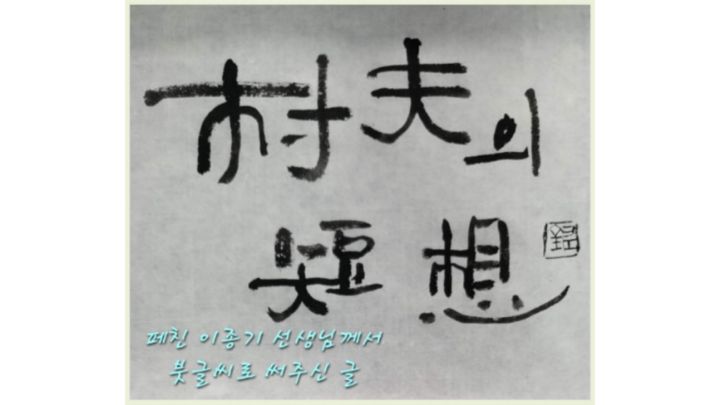 村夫의
短想
페친 이종기 선생님께서
붓글씨로 써주신 글